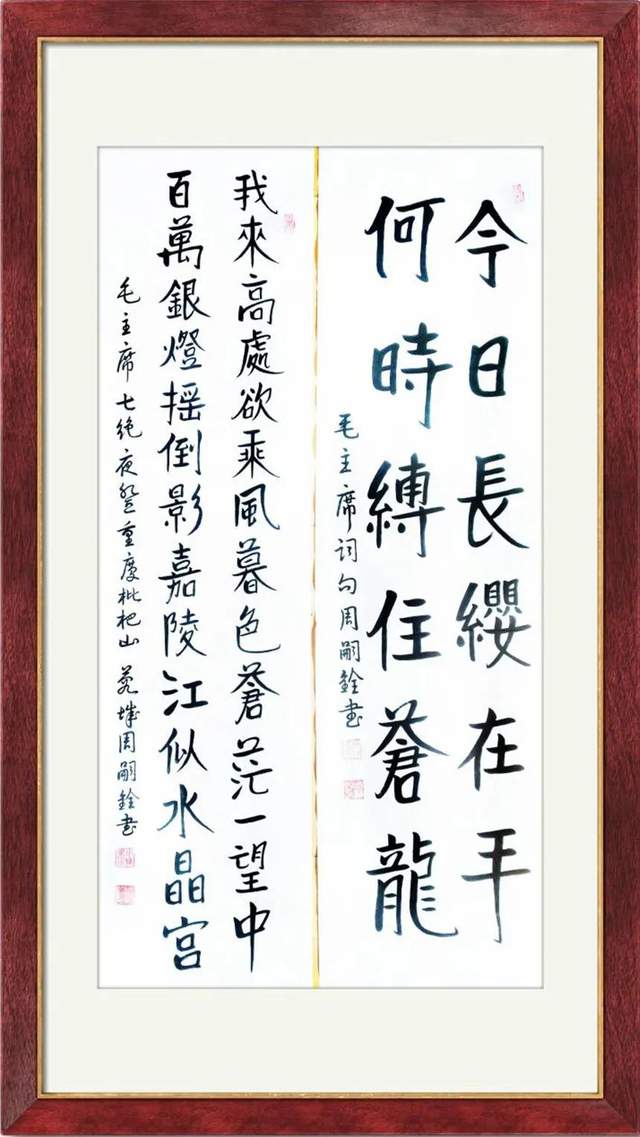 今日長纓在手
何時縛住蒼龍
毛主席词句周嗣銓书
我來高處欲乘風暮色蒼茫一望中
百萬銀燈摇倒影嘉陵江似水晶宫
毛主席七绝夜登重慶枇杷山 城周嗣銓书